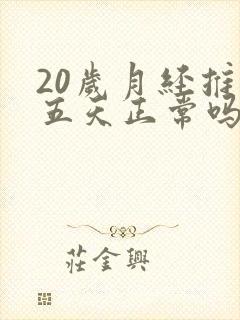 20歲月經推
五天正常吗
莊金興